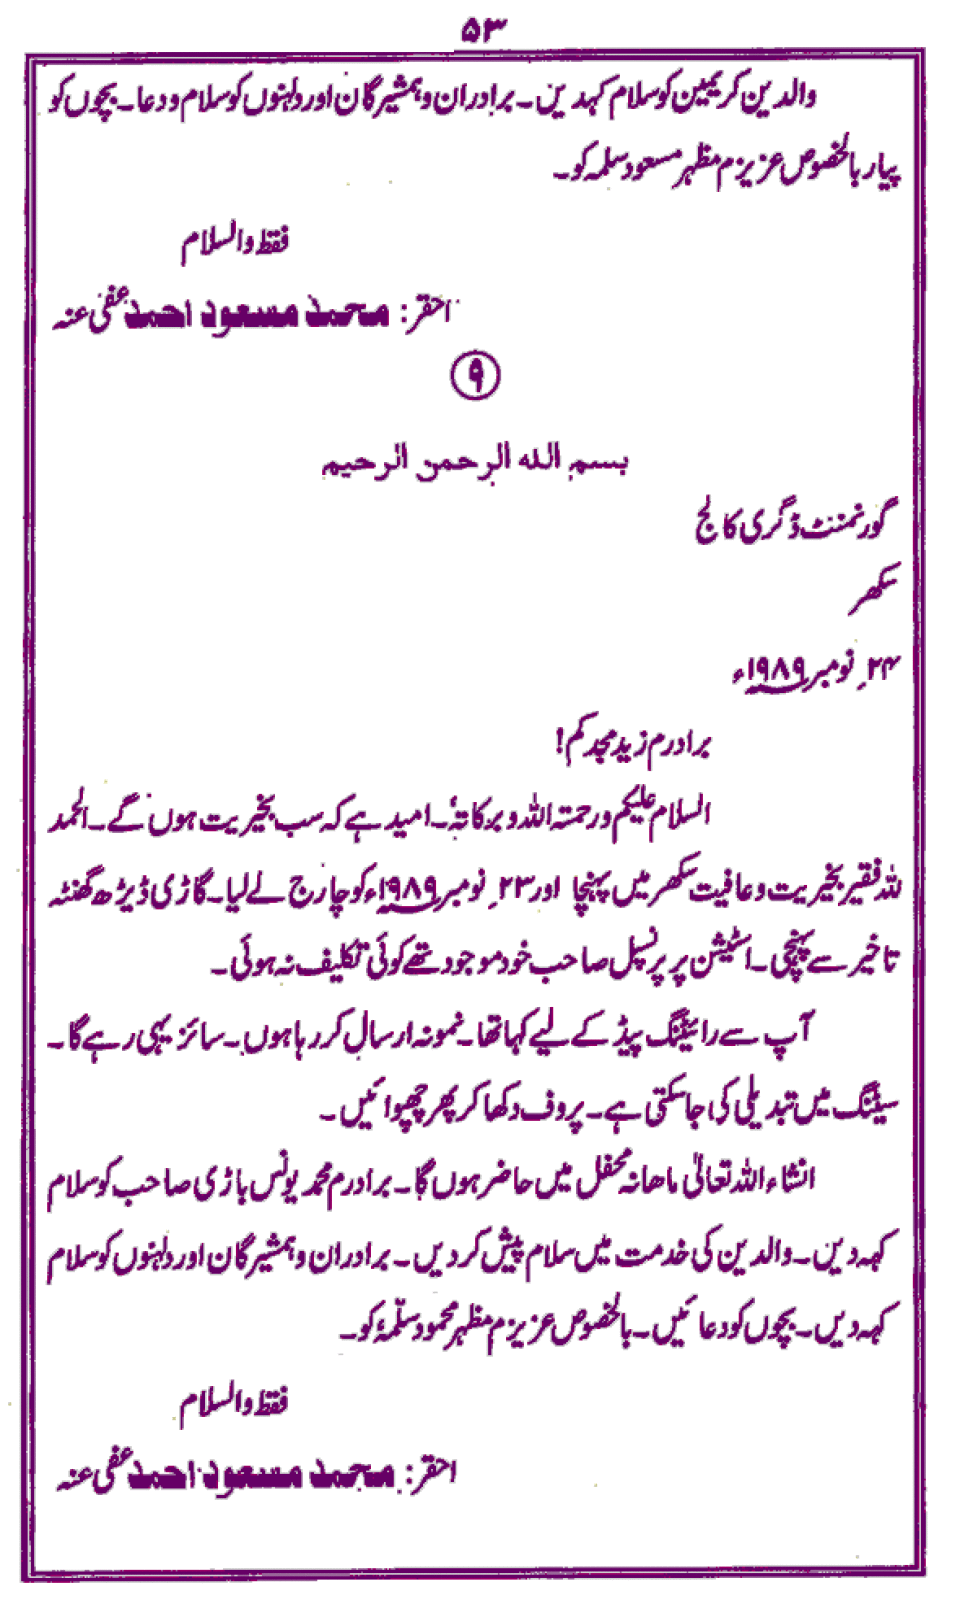 ۵۳
والدین کریمین کو سلام کہدیں۔ برادران و ہمشیرگان اور دلہنوں کو سلام و دعا۔ بچوں کو
پیار بالخصوص عزیزم مظہر مسعود سلمہ کو۔
فقط والسلام
احقر: محمد مسعود احمد عفی عنہ
۹
بسم الله الرحمن الرحيم
گورنمنٹ ڈگری کالج
سکھر
۲۴؍ نومبر ۱۹۸۹ء
برادرم زید مجدکم!
السلام علیکم ورحمتہ اللہ وبرکاتہٗ۔ امید ہے کہ سب بخیریت ہوں گے۔ الحمد
للہ فقیر بخیریت و عافیت سکھر میں پہنچا اور ۲۳؍ نومبر ۱۹۸۹ء کو چارج لے لیا۔ گاڑی ڈیڑھ گھنٹہ
تاخیر سے پہنچی۔ اسٹیشن پر پرنسپل صاحب خود موجود تھے کوئی تکلیف نہ ہوئی۔
آپ سے رائیٹنگ پیڈ کے لیے کہا تھا۔ نمونہ ارسال کر رہا ہوں۔ سائز یہی رہے گا۔
سیٹنگ میں تبدیلی کی جاسکتی ہے۔ پروف دکھا کر پھر چھپوائیں۔
انشاء اللہ تعالیٰ ماھانہ محفل میں حاضر ہوں گا۔ برادرم محمد یونس باڑی صاحب کو سلام
کہہ دیں۔ والدین کی خدمت میں سلام پیش کر دیں۔ برادران و ہمشیرگان اور دلہنوں کو سلام
کہہ دیں۔ بچوں کو دعائیں۔ بالخصوص عزیزم مظہر محمود سلّمہٗ کو۔
فقط والسلام
احقر: محمد مسعود احمد عفی عنہ